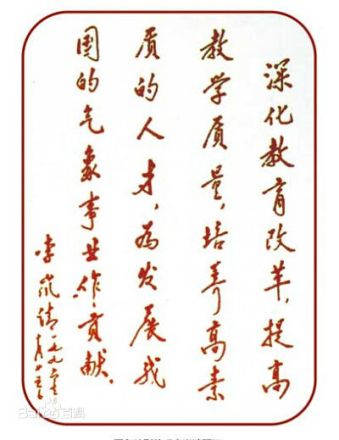 深化教育改革，提高
教学质量，培养高素
质的人才，为发展我
国的气象事业作贡献。
李岚清
Baidu百科